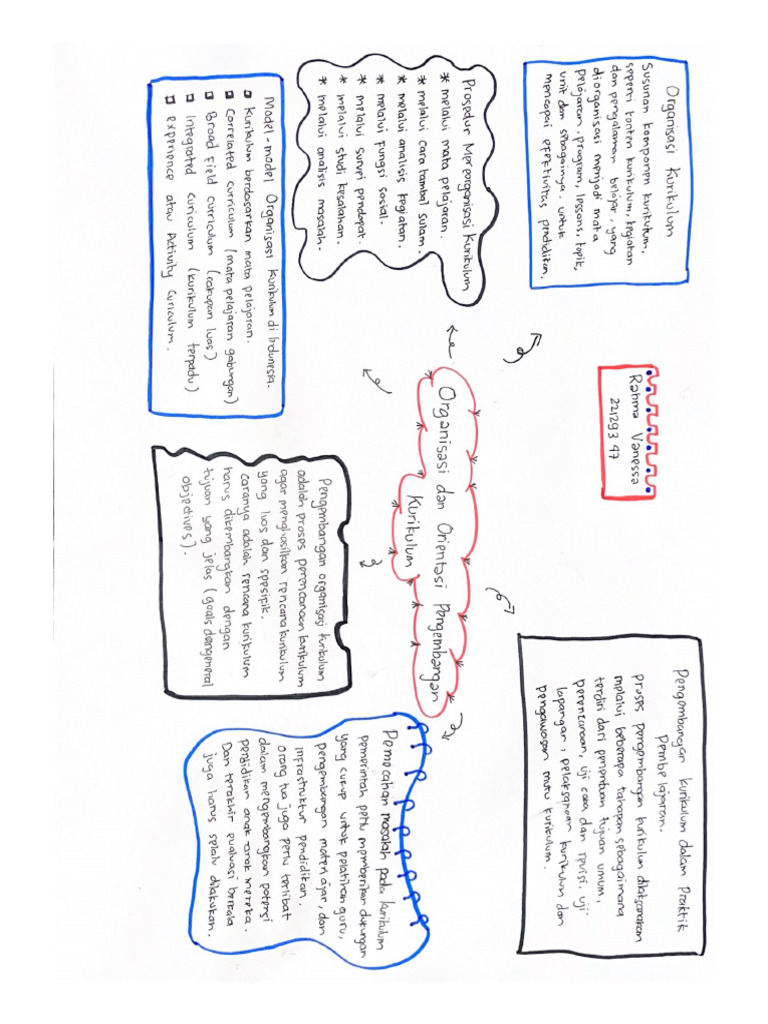 Organisasi Kurikulum
Susunan komponen kurikulum,
seperti konten kurikulum, kegiatan
dan pengalaman belajar, yang
diorganisasi menjadi mata
pelajaran, program, lessons, topik,
unit dan sebagainya. untuk
mencapai efektivitas pendidikan.
Rahma Vanessa
22129347
Pengembangan kurikulum dalam Praktik
Pembelajaran.
proses pengembangan kurikulum dilaksanakan
melalui beberapa tahapan sebagaimana
terdiri dari penentuan tujuan umum,
perencanaan, uji coba dan revisi, uji
lapangan, pelaksanaan kurikulum dan
pengawasan mutu kurikulum.
Prosedur Mereorganisasi Kurikulum
* melalui mata pelajaran.
* melalui cara tambal sulam.
* melalui analisis kegiatan.
* melalui fungsi sosial.
* melalui survei pendapat.
* melalui studi kesalahan.
* melalui analisis masalah.
Organisasi dan Orientasi Pengembangan
Kurikulum
Model-model Organisasi kurikulum di Indonesia.
❑ Kurikulum berdasarkan mata pelajaran.
❑ Correlated curriculum (mata pelajaran gabungan)
❑ Broad Field curriculum (cakupan luas)
❑ Integrated curiculum (kurikulum terpadu)
❑ experience atau Activity Curiculum.
Pengembangan organisasi kurikulum
adalah proses perencanaan kurikulum
agar menghasilkan rencana kurikulum
yang luas dan spesipik.
caranya adalah rencana kurikulum
harus dikembangkan dengan
tujuan yang jelas (goals dan general
objectives).
Pemecahan masalah pada kurikulum
pemerintah perlu memberikan dukungan
yang cukup untuk pelatihan guru,
pengembangan materi ajar, dan
infrastruktur pendidikan.
orang tua juga perlu terlibat
dalam mengembangkan potensi
pendidikan anak-anak mereka.
Dan terakhir evaluasi berkala
juga harus selalu dilakukan.